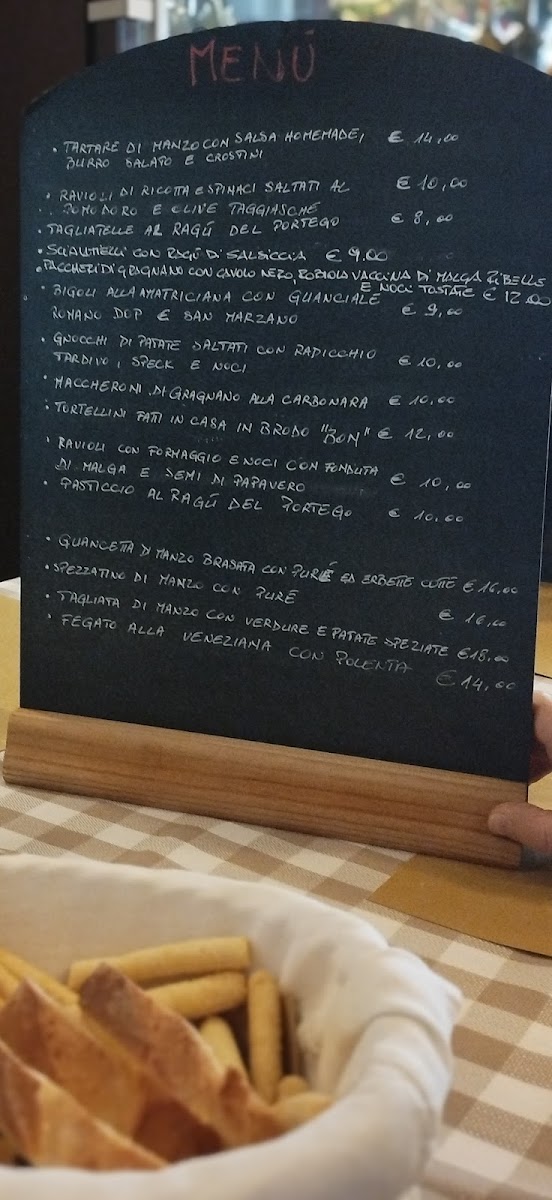 MENÚ
• TARTARE DI MANZO CON SALSA HOMEMADE, € 14,00
BURRO SALATO E CROSTINI
• RAVIOLI DI RICOTTA E SPINACI SALTATI AL € 10,00
POMODORO E OLIVE TAGGIASCHE
• TAGLIATELLE AL RAGÚ DEL PORTEGO € 8,00
• SCIALATIELLI CON RAGÚ DI SALSICCIA € 9.00
• PACCHERI DI GRAGNANO CON CAVOLO NERO, ROBIOLA VACCINA DI MALGA RIBELLE
E NOCI TOSTATE € 12.00
• BIGOLI ALLA AMATRICIANA CON GUANCIALE € 9,00
ROMANO DOP E SAN MARZANO
• GNOCCHI DI PATATE SALTATI CON RADICCHIO € 10,00
TARDIVO, SPECK E NOCI
• MACCHERONI DI GRAGNANO ALLA CARBONARA € 10,00
• TORTELLINI FATI IN CASA IN BRODO "BON" € 12,00
• RAVIOLI CON FORMAGGIO E NOCI CON FONDUTA € 10,00
DI MALGA E SEMI DI PAPAVERO
• PASTICCIO AL RAGÚ DEL PORTEGO € 10,00
• GUANCETTA DI MANZO BRASATA CON PURÉ ED ERBETTE COTTE € 16,00
• SPEZZATINO DI MANZO CON PURÉ € 16,00
• TAGLIATA DI MANZO CON VERDURE E PATATE SPEZIATE € 18,00
• FEGATO ALLA VENEZIANA CON POLENTA € 14,00